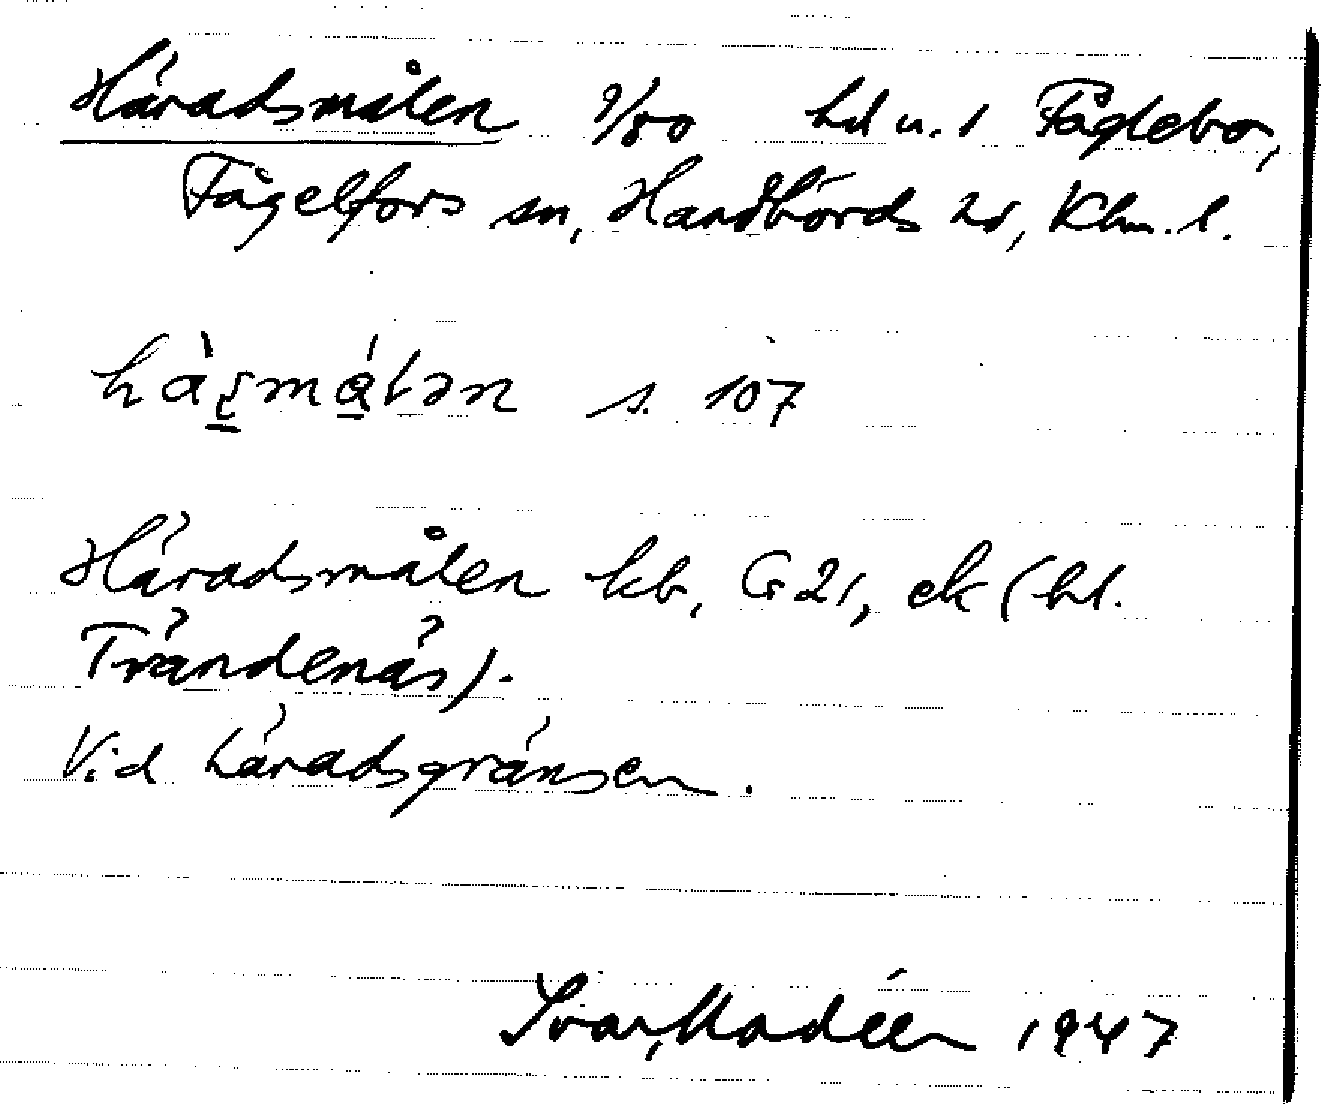 Häradsmålen 9/80 hd u. 1 Fåglebo,
Fågelfors sn, Handbörds hd, Klm. l.
hàr̲má̲lən s. 107
Häradsmålen kb, G 21, ek (bl.
Trändenäs).
Vid häradsgränsen.
Ivar Modéer 1947